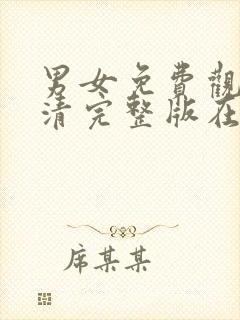 男女免費觀
清完整版在
席某某